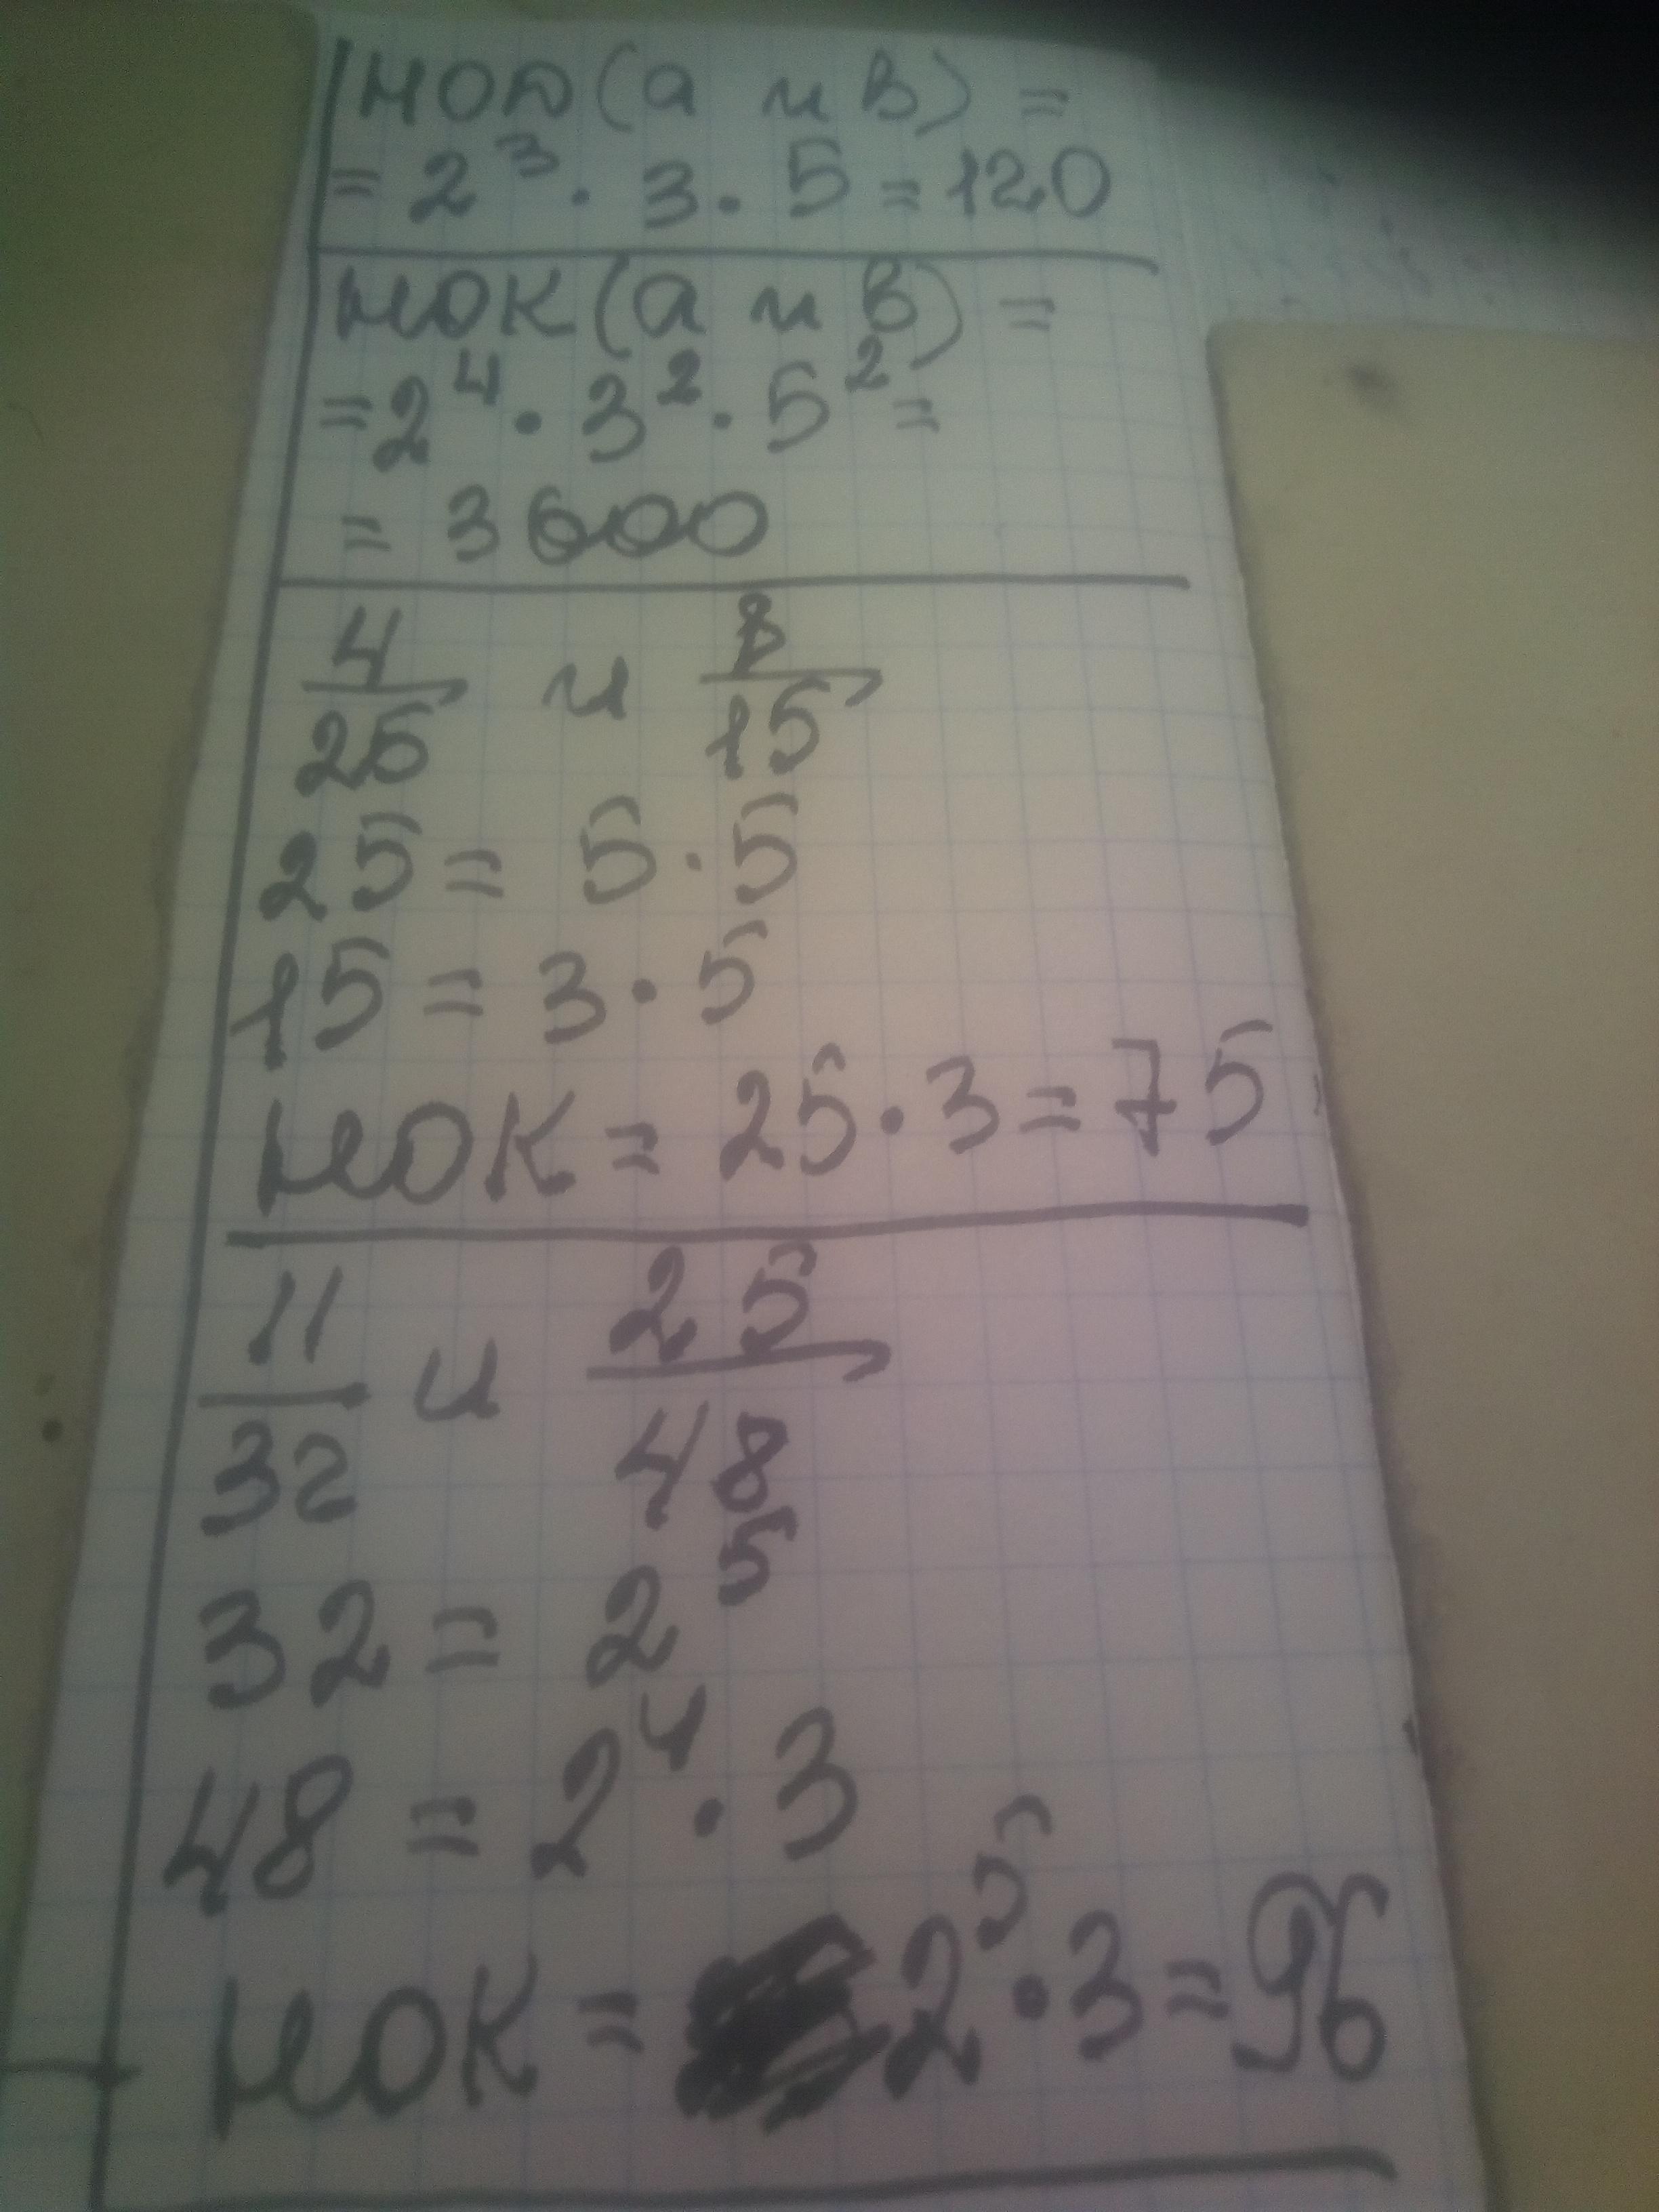 НОД(а и в) =
= 2³ · 3 · 5 = 120
НОК(а и в) =
= 2⁴ · 3² · 5² =
= 3600
4/25 и 8/15
25 = 5 · 5
15 = 3 · 5
НОК = 25 · 3 = 75
11/32 и 25/48
32 = 2⁵
48 = 2⁴ · 3
НОК = 2⁵ · 3 = 96